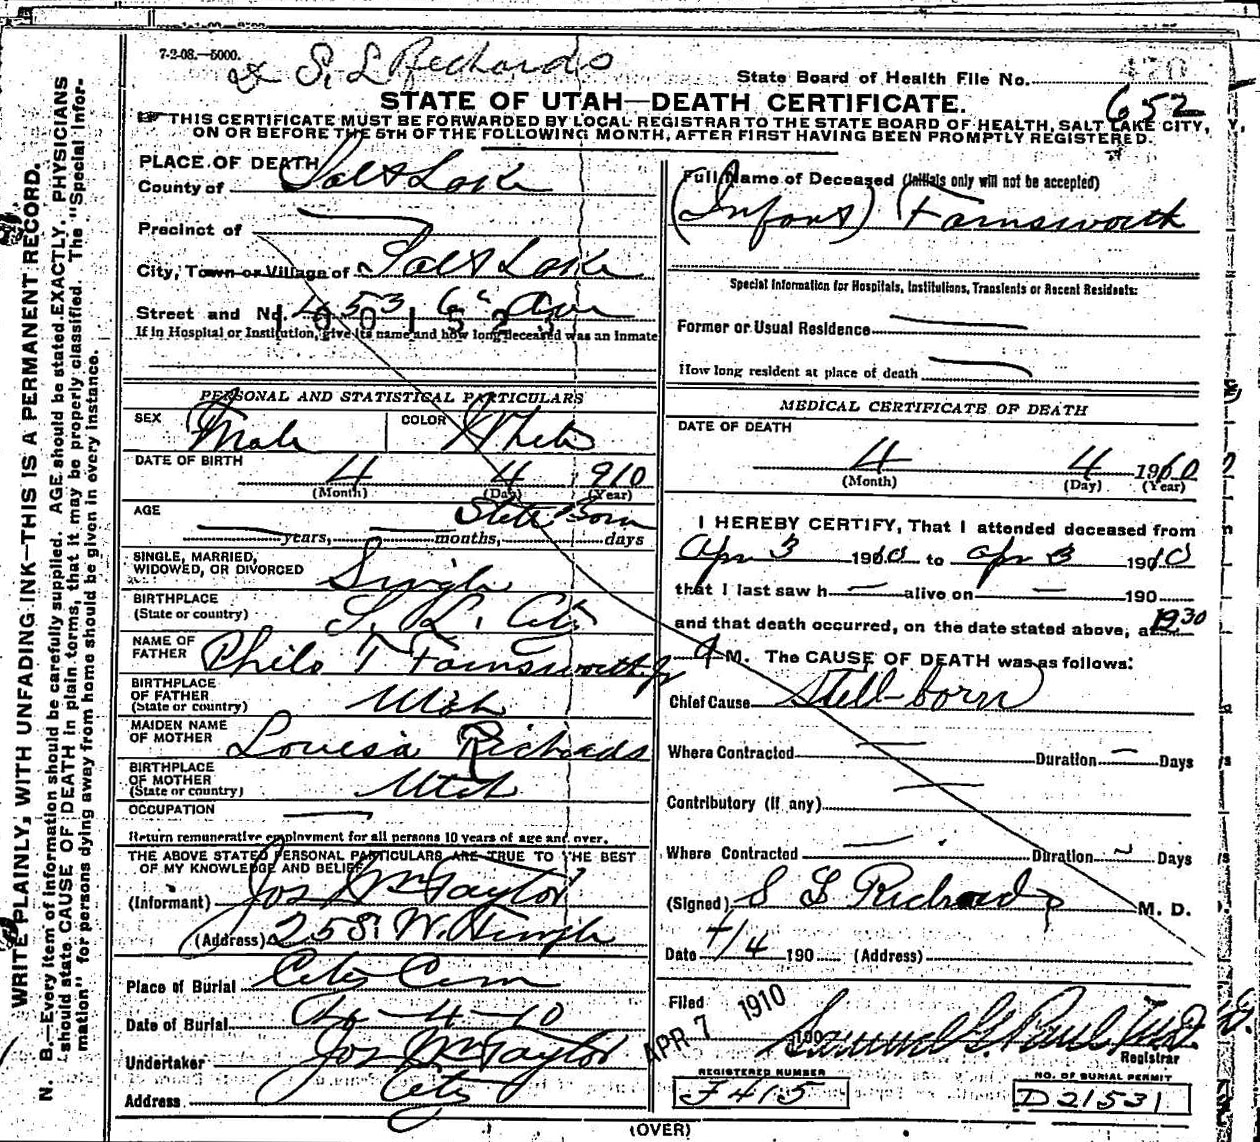 7-2-08.—5000.
S. L. Richards
State Board of Health File No.
652
STATE OF UTAH—DEATH CERTIFICATE.
THIS CERTIFICATE MUST BE FORWARDED BY LOCAL REGISTRAR TO THE STATE BOARD OF HEALTH, SALT LAKE CITY,
ON OR BEFORE THE 5TH OF THE FOLLOWING MONTH, AFTER FIRST HAVING BEEN PROMPTLY REGISTERED.
WRITE PLAINLY, WITH UNFADING INK—THIS IS A PERMANENT RECORD.
N. B.—Every item of information should be carefully supplied. AGE should be stated EXACTLY. PHYSICIANS
should state CAUSE OF DEATH in plain terms, that it may be properly classified. The "Special Infor-
mation" for persons dying away from home should be given in every instance.
PLACE OF DEATH
County of Salt Lake
Precinct of
City, Town or Village of Salt Lake
Street and No. 453 6th Ave
If in Hospital or Institution, give its name and how long deceased was an Inmate
PERSONAL AND STATISTICAL PARTICULARS
SEX Male COLOR White
DATE OF BIRTH 4 4 910
(Month) (Day) (Year)
AGE Still Born
years, months, days
SINGLE, MARRIED,
WIDOWED, OR DIVORCED Single
BIRTHPLACE
(State or country) S. L. City
NAME OF
FATHER Philo T Farnsworth Jr
BIRTHPLACE
OF FATHER
(State or country) Utah
MAIDEN NAME
OF MOTHER Louisa Richards
BIRTHPLACE
OF MOTHER
(State or country) Utah
OCCUPATION
Return remunerative employment for all persons 10 years of age and over.
THE ABOVE STATED PERSONAL PARTICULARS ARE TRUE TO THE BEST
OF MY KNOWLEDGE AND BELIEF
(Informant) Jos Wm Taylor
(Address)
Place of Burial City Cem
Date of Burial 4-4-10
Undertaker Jos Wm Taylor
Address City
Full Name of Deceased (Initials only will not be accepted)
(Infant) Farnsworth
Special Information for Hospitals, Institutions, Transients or Recent Residents:
Former or Usual Residence
How long resident at place of death
MEDICAL CERTIFICATE OF DEATH
DATE OF DEATH
4 4 1910
(Month) (Day) (Year)
I HEREBY CERTIFY, That I attended deceased from
Apr 3 1910 to Apr 3 1910
that I last saw h — alive on — 190
and that death occurred, on the date stated above, at
M. The CAUSE OF DEATH was as follows:
Chief Cause Still-born
Where Contracted — Duration — Days
Contributory (If any) —
Where Contracted — Duration — Days
(Signed) S L Richards M. D.
Date 4/4 190 (Address)
Filed APR 7 1910 190
Samuel G. Paul MD
Registrar
REGISTERED NUMBER
J415
NO. OF BURIAL PERMIT
D21531
(OVER)